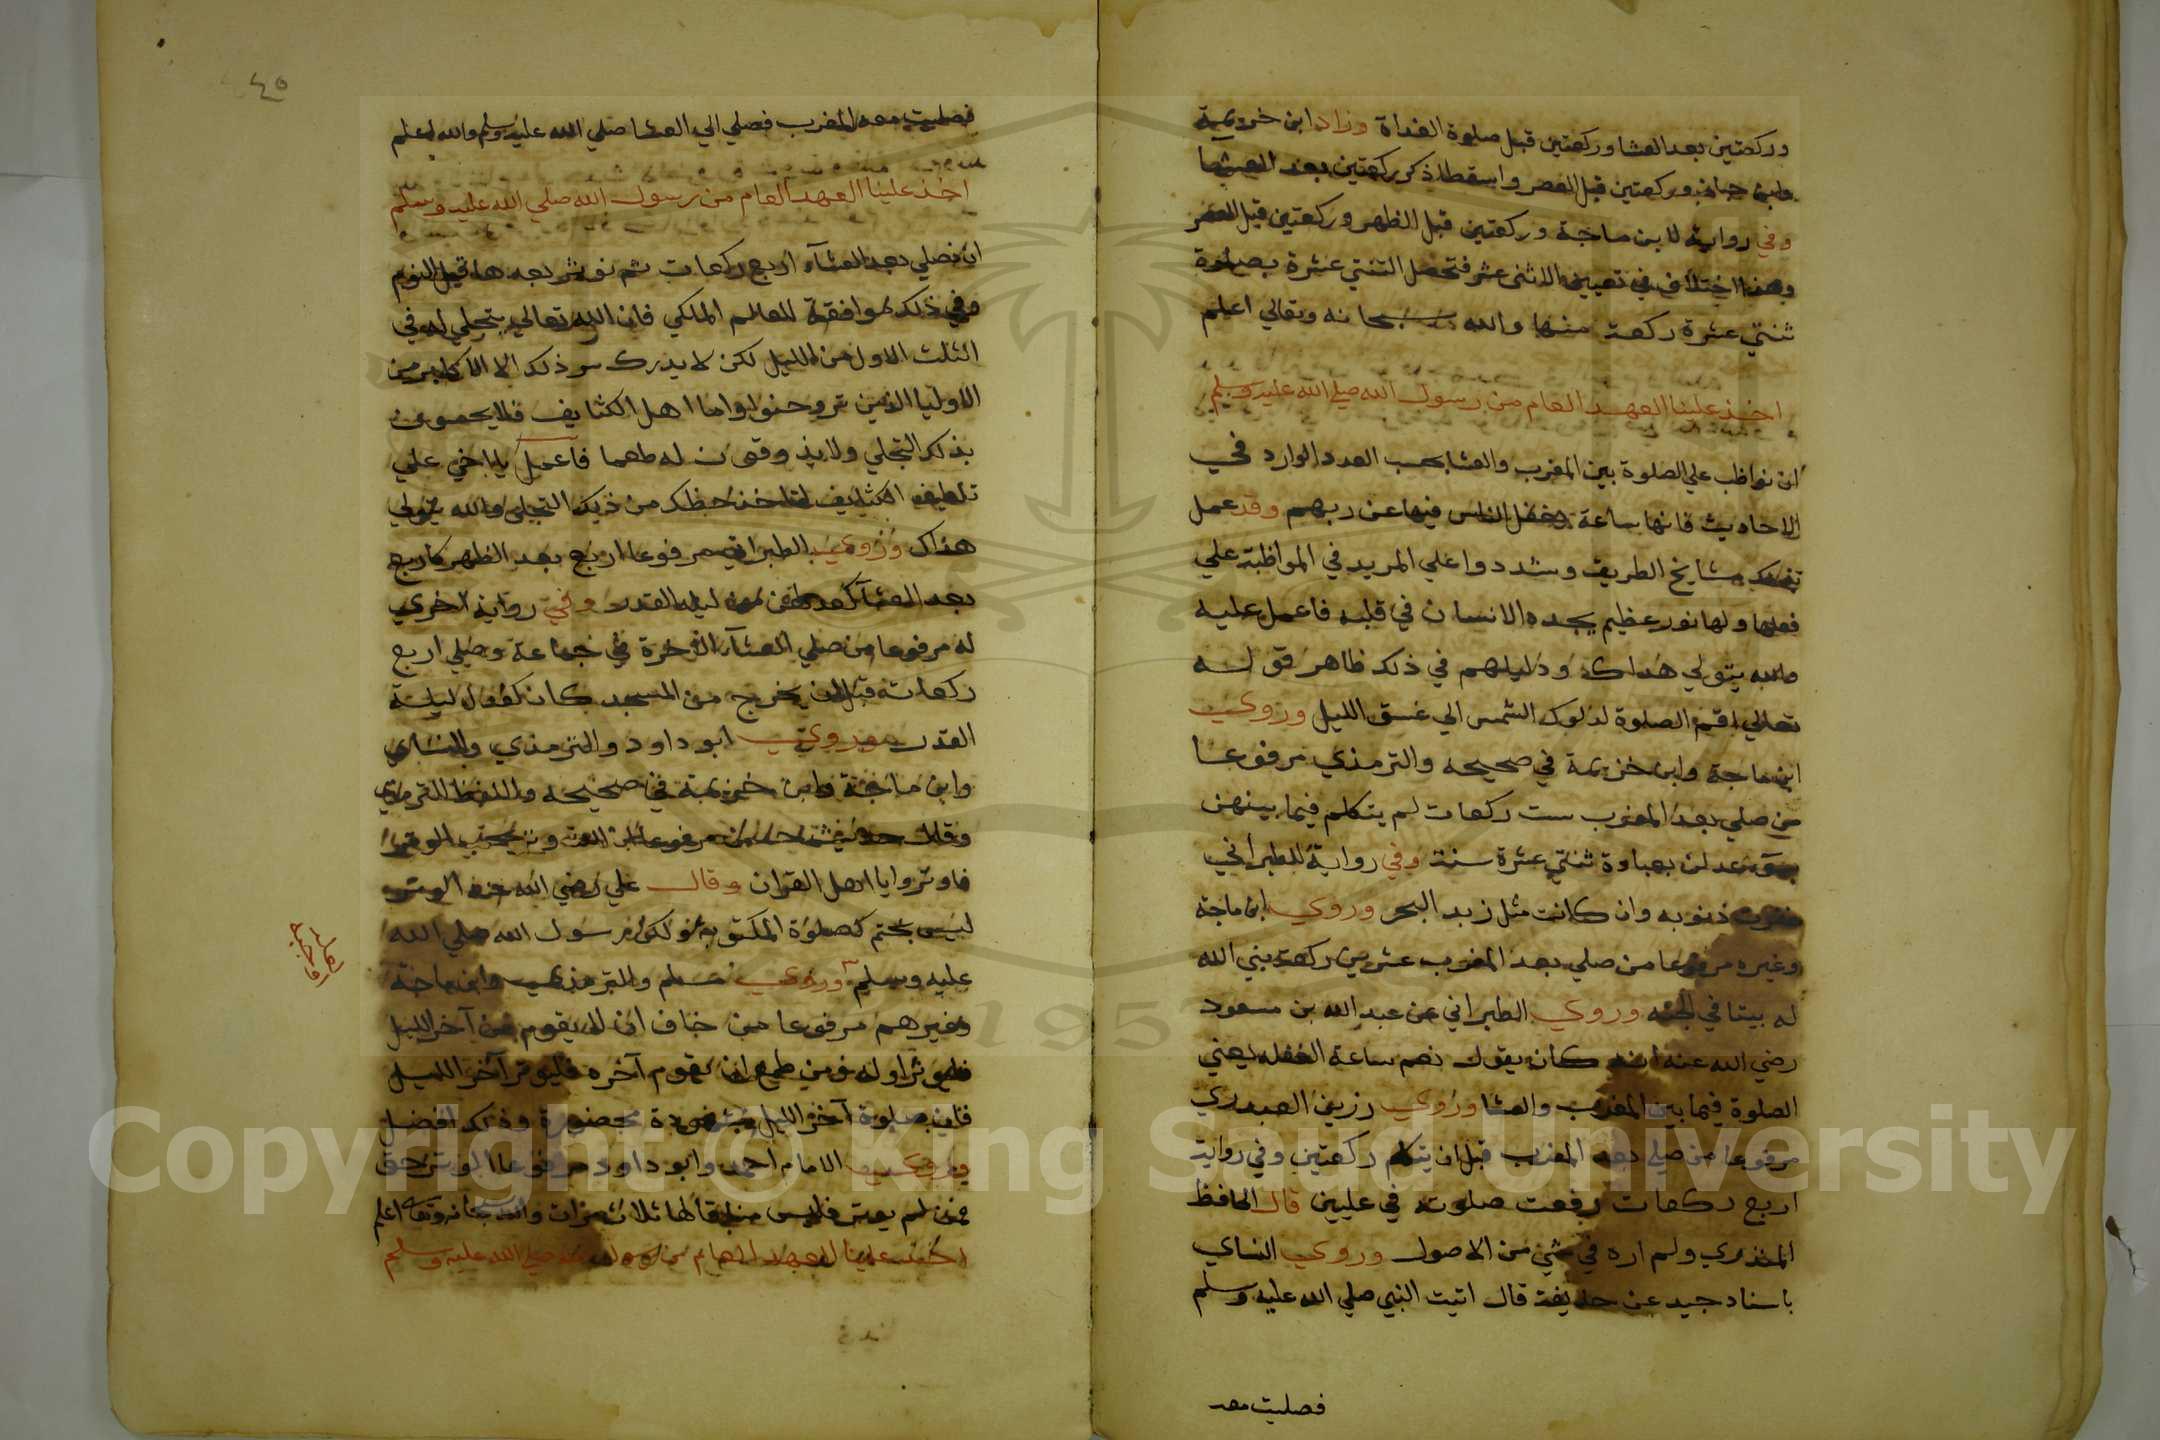 وركعتين بعد العشا وركعتين قبل صلوة الغداة وزاد ابن خزيمة
وابن حبان وركعتين قبل العصر واسقطا ذكر ركعتين بعد العشا
وفي رواية لابن ماجة وركعتين قبل الظهر وركعتين قبل العصر
وهذا اختلاف في تعيين الاثنى عشر فتحصل اثنتي عشرة بصلوة
ثنتي عشرة ركعة منها والله سبحانه وتعالي اعلم
اخذ علينا العهد العام من رسول الله صلي الله عليه وسلم
ان نواظب علي الصلوة بين المغرب والعشا بحسب العدد الوارد في
الاحاديث فانها ساعة يغفل الناس فيها عن ربهم وقد عمل
بذلك مشايخ الطريق وشددوا علي المريد في المواظبة علي
فعلها ولها نور عظيم يجده الانسان في قلبه فاعمل عليه
والله يتولي هداك ودليلهم في ذلك ظاهر قوله
تعالي اقم الصلوة لدلوك الشمس الي غسق الليل وروي
ابن ماجة وابن خزيمة في صحيحه والترمذي مرفوعا
من صلي بعد المغرب ست ركعات لم يتكلم فيما بينهن
بسوء عدلن بعبادة ثنتي عشرة سنة وفي رواية للطبراني
غفرت ذنوبه وان كانت مثل زبد البحر وروي ابن ماجة
وغيره مرفوعا من صلي بعد المغرب عشرين ركعة بني الله
له بيتا في الجنة وروي الطبراني عن عبد الله بن مسعود
رضي الله عنه انه كان يقول نعم ساعة الغفلة يعني
الصلوة فيما بين المغرب والعشا وروي رزين العبدري
مرفوعا من صلي بعد المغرب قبل ان يتكلم ركعتين وفي رواية
اربع ركعات رفعت صلوته في عليين قال الحافظ
المنذري ولم اره في شي من الاصول وروي النساي
باسناد جيد عن حذيفة قال اتيت النبي صلي الله عليه وسلم
فصليت معه
٤٥
فصليت معه المغرب فصلي الي العشا صلي الله عليه وسلم والله اعلم
اخذ علينا العهد العام من رسول الله صلي الله عليه وسلم
ان نصلي بعد العشآء اربع ركعات ثم نوتر بعدها قبل النوم
وفي ذلك موافقة للعالم الملكي فان الله تعالي يتجلي له في
الثلث الاول من الليل لكن لا يدرك سر ذلك الا الاكابر من
الاوليا الذين تروحنوا واما اهل الكثايف فلا يحسون
بذلك التجلي ولا يذوقون له طعما فاعمل يا اخي علي
تلطيف الكثايف لتاخذ حظك من ذلك التجلي والله يتولي
هداك وروي الطبراني مرفوعا اربع بعد الظهر كاربع
بعد العشآ كعدلهن من ليلة القدر وفي رواية اخري
له مرفوعا من صلي العشآء الاخرة في جماعة وصلي اربع
ركعات قبل ان يخرج من المسجد كان كعدل ليلة
القدر وروي ابو داود والترمذي والنساي
وابن ماجة وابن خزيمة في صحيحه واللفظ للترمذي
وقال حديث حسن مرفوعا ان الله وتر يحب الوتر
فاوتروا يا اهل القران وقال علي رضي الله عنه الوتر
ليس بحتم كصلوة المكتوبة ولكن رسول الله صلي الله
عليه وسلم وروي مسلم والترمذي وابن ماجة
وغيرهم مرفوعا من خاف ان لا يقوم من آخر الليل
فليوتر اوله ومن طمع ان يقوم آخره فليوتر آخر الليل
فان صلوة آخر الليل مشهودة محضورة وذلك افضل
وروي الامام احمد وابو داود مرفوعا الوتر حق
فمن لم يوتر فليس منا قالها ثلاث مرات والله سبحانه وتعالي اعلم
اخذ علينا العهد العام من رسول الله صلي الله عليه وسلم
Copyright © King Saud University
1957